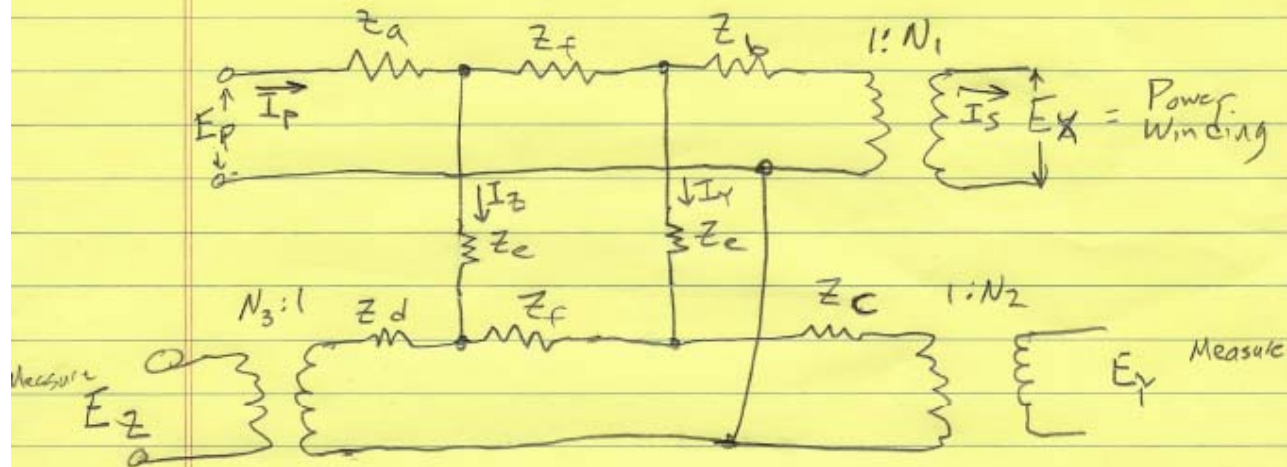 Za Zf Zb 1:N1
Ip Ep Is Ex = Power Winding
Iz Iy
Ze Ze
N3:1 Zd Zf Zc 1:N2
Measure Ez Ey Measure